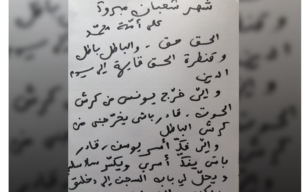 شهر شعبان مبروك
الحق حق.. والباطل باطل
و قنطرة الحق قايمة إلى يوم
الدين
و إلي خرّج يونس من كرش
الحوت. قادر باش يخرجني من
كرش الباطل
و إلي فكّ أسر يوسف. قادر
باش يفكّ أسري و يكسّر سلاسلي
و يحلّ لي باب السجن إلي